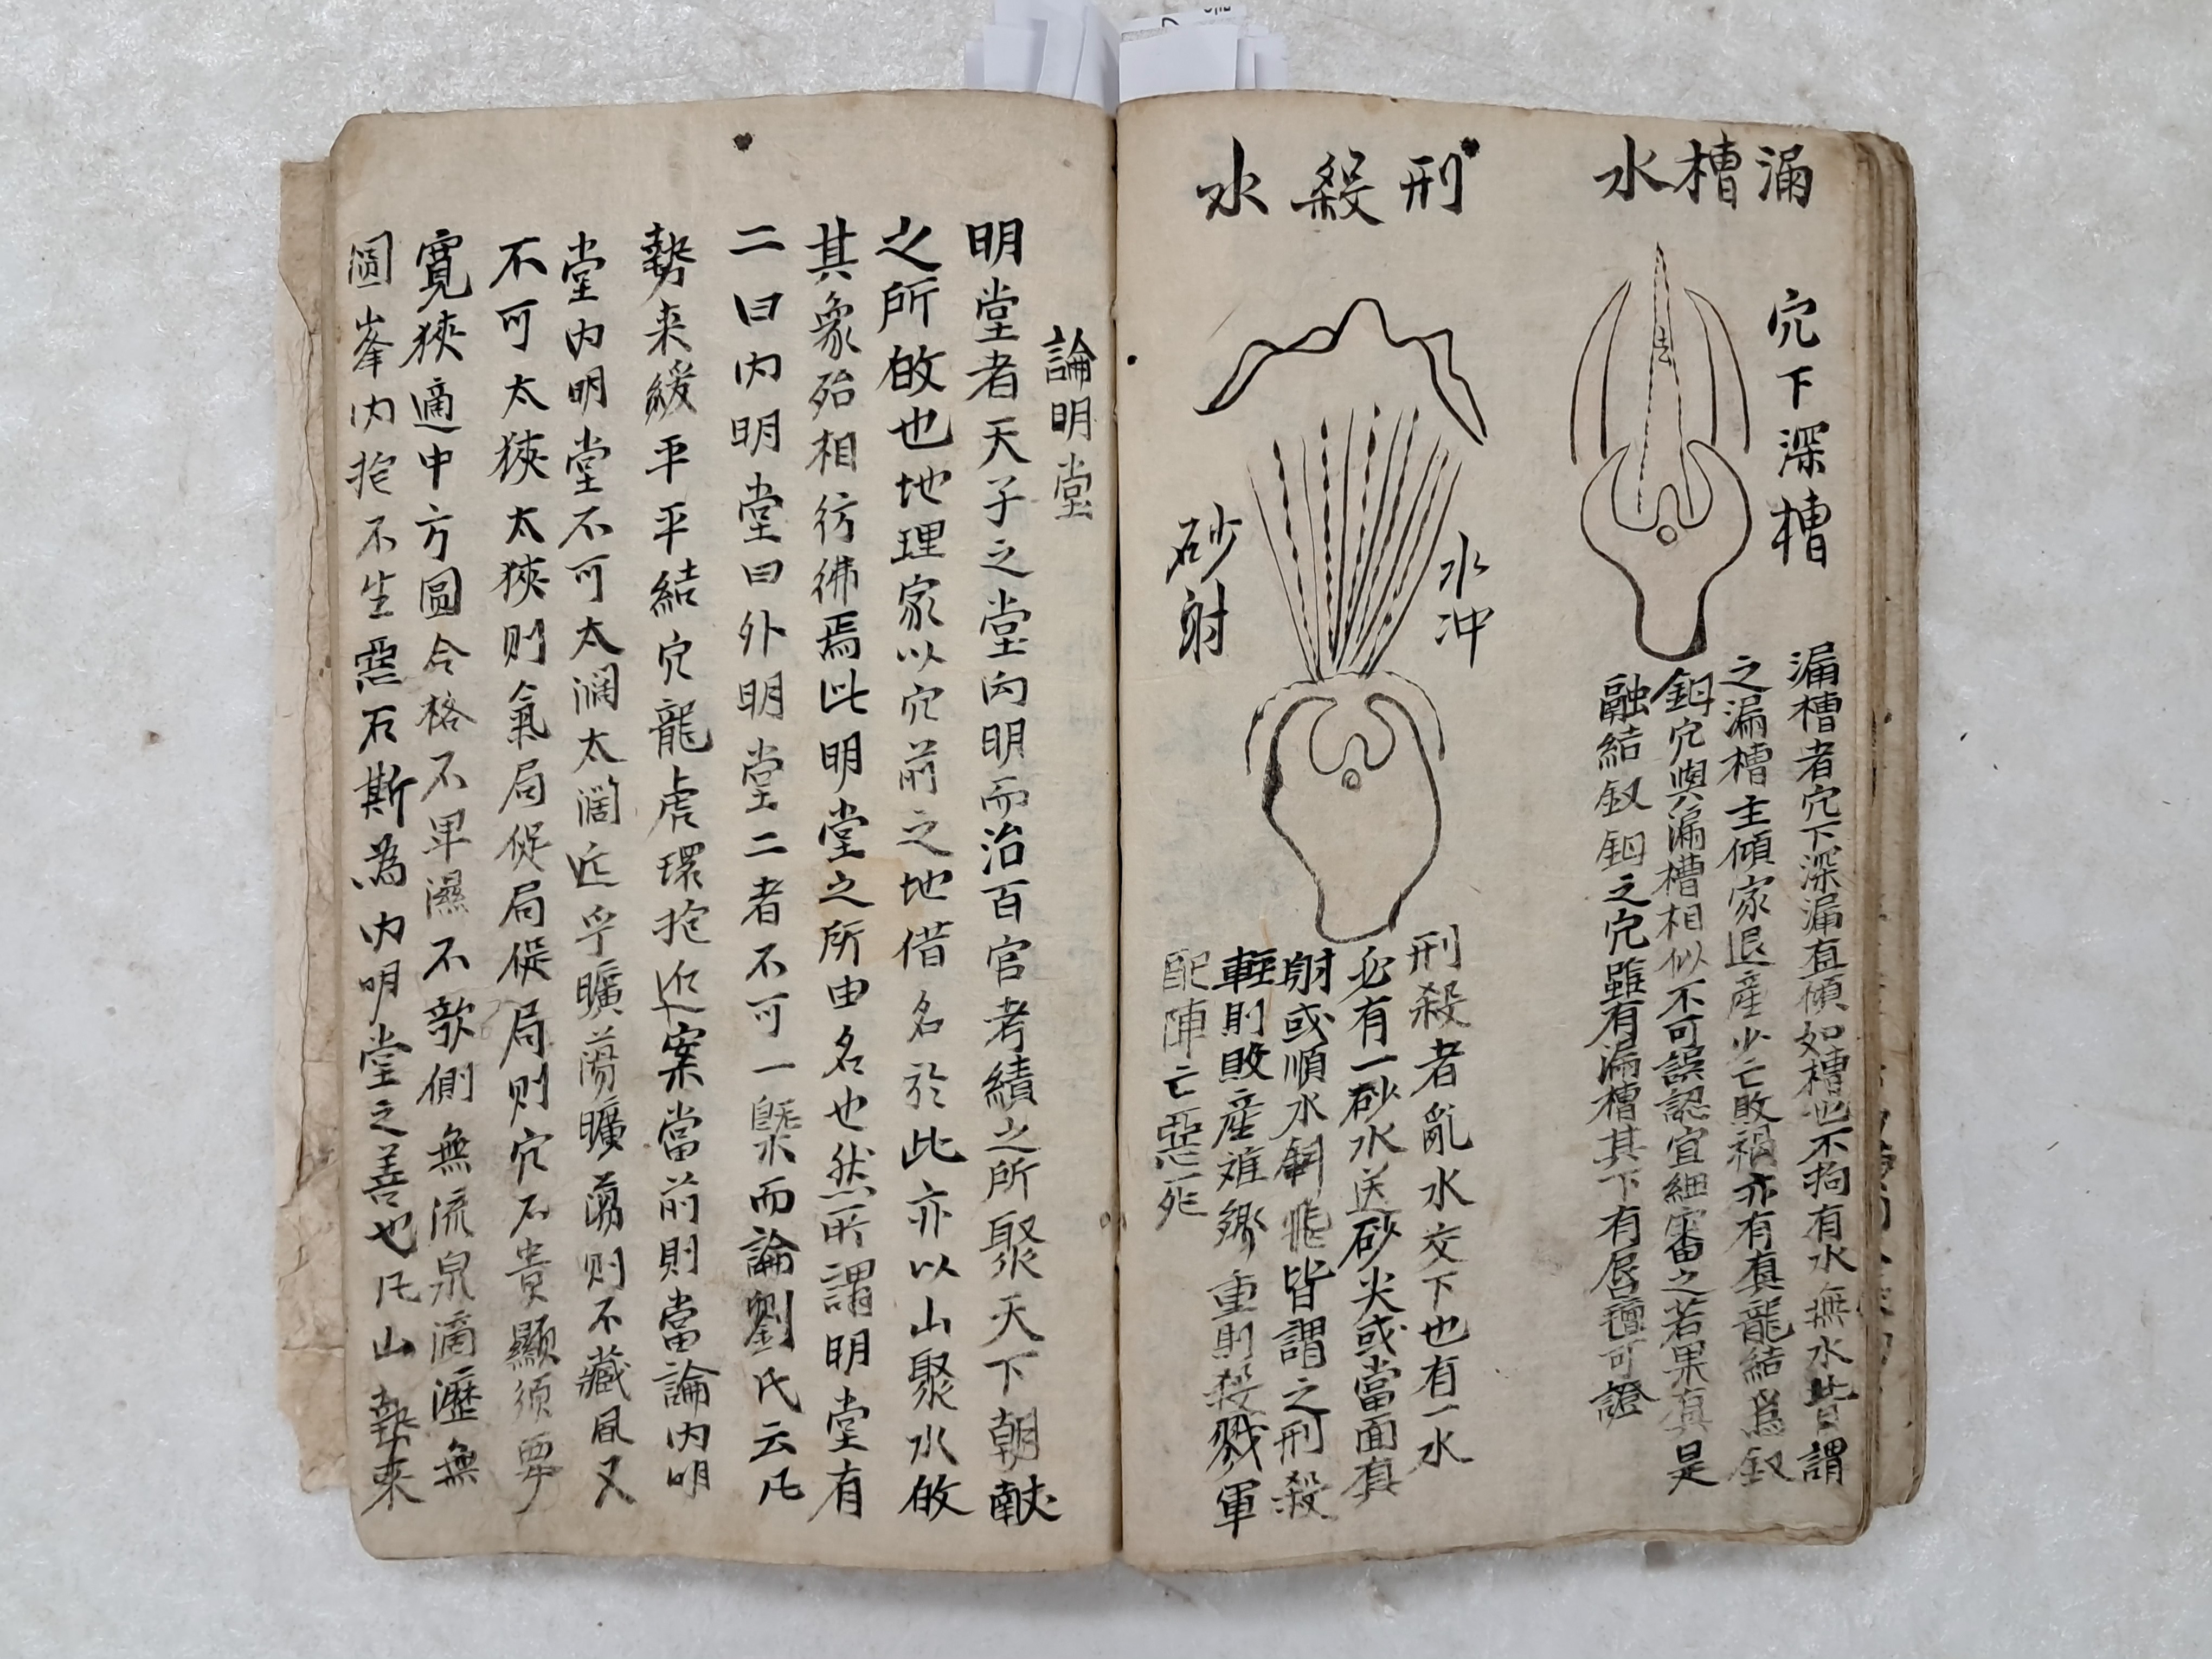 漏槽水
穴下深槽
漏槽者穴下深漏直傾如槽也不拘有水無水皆謂
之漏槽主傾家退産少亡敗禍亦有真龍結爲釵
鉗穴與漏槽相似不可誤認宜細審之若果真是
融結釵鉗之穴雖有漏槽其下有唇氊可證
刑殺水
水冲
砂射
刑殺者亂水交下也有一水
必有一砂水送砂尖或當面真
射或順水斜飛皆謂之刑殺
輕則敗産離鄉重則殺戮軍
配陣亡惡死
論明堂
明堂者天子之堂向明而治百官考績之所聚天下朝献
之所故也地理家以穴前之地借名於此亦以山聚水故
其象殆相彷彿焉此明堂之所由名也然所謂明堂有
二曰内明堂曰外明堂二者不可一槩而論劉氏云凡
勢来緩平平結穴龍虎環抱近案當前則當論内明
堂内明堂不可太濶太濶近乎曠蕩曠蕩则不藏風又
不可太狹太狹则氣局促局促局则穴不貴顯須要
寛狹適中方圓合格不卑濕不欹側無流泉滴瀝無
圓峯内抱不生惡石斯為内明堂之善也凡山勢来